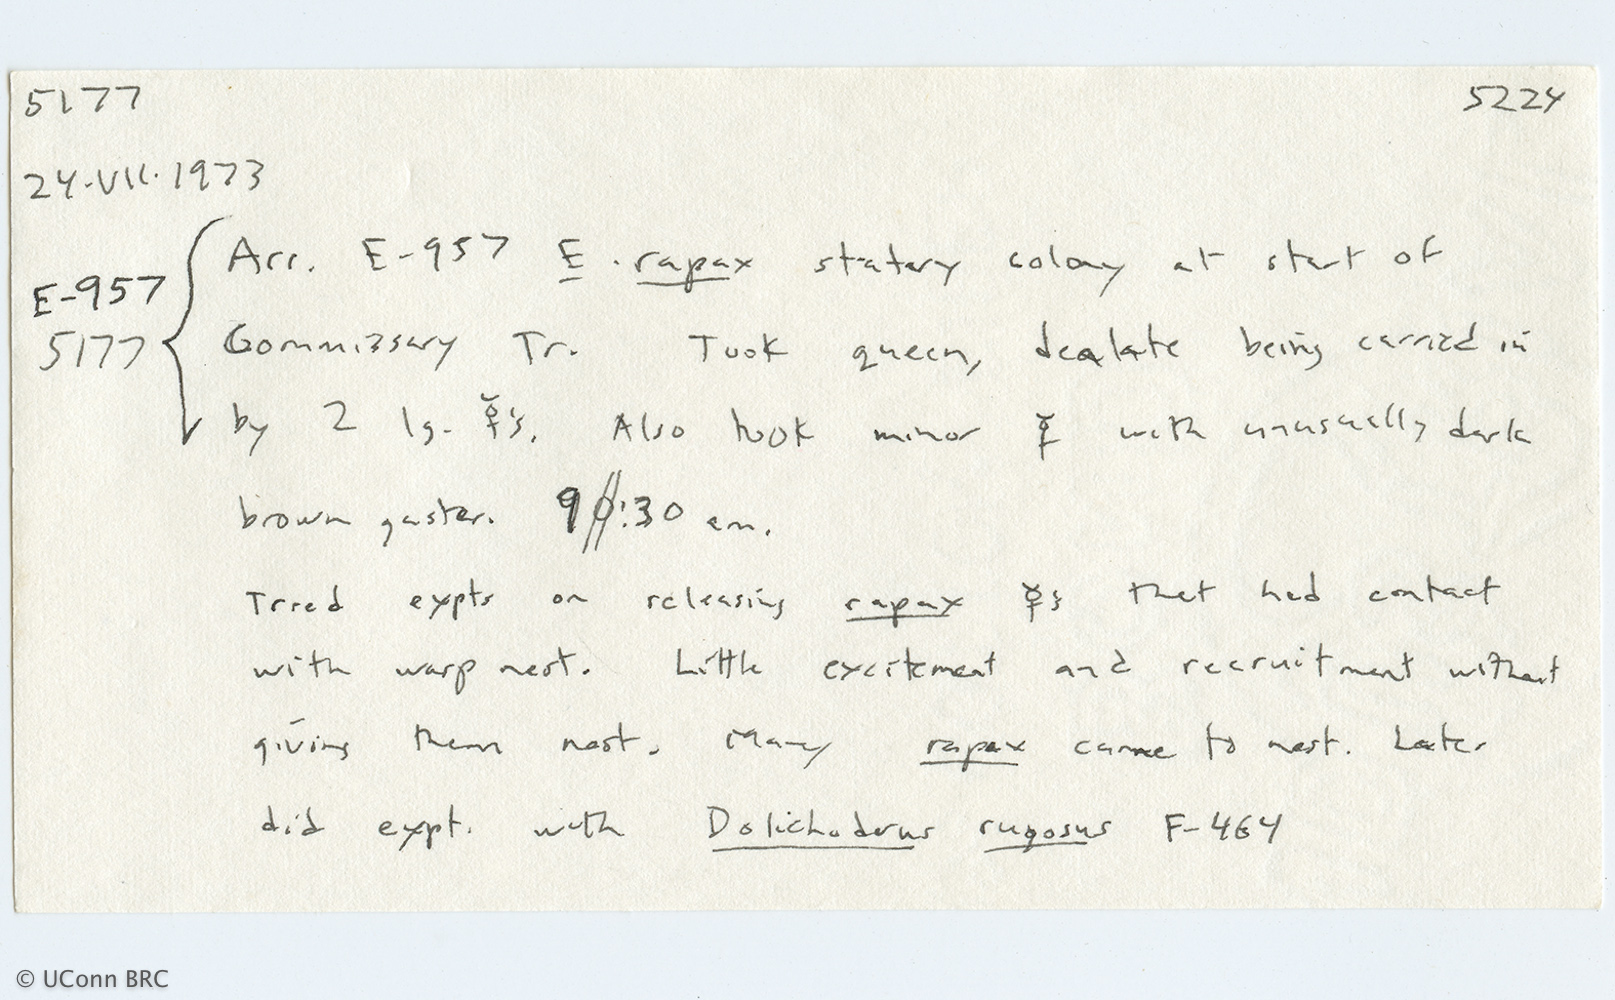 5177 5224
24.VII.1973
E-957
5177
Arr. E-957 E. rapax statary colony at start of
Gommissary Tr. Took queen, dealate being carried in
by 2 lg. ☿'s. Also took minor ☿ with unusually dark
brown gaster. 9:30 am.
Tried expts on releasing rapax ☿s that had contact
with wasp nest. Little excitement and recruitment without
giving them nest. Many rapax came to nest. Later
did expt. with Dolichoderus rugosus F-464
© UConn BRC